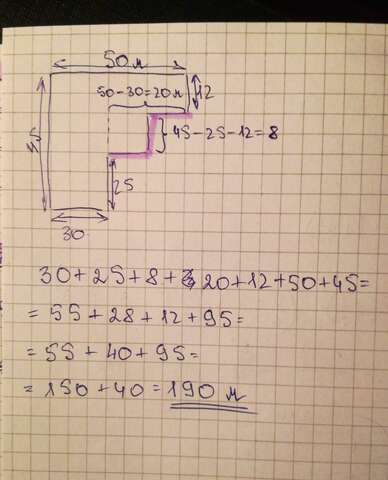 50 м
50-30=20 м
12
45
45-25-12=8
25
30
30+25+8+20+12+50+45=
=55+28+12+95=
=55+40+95=
=150+40=190 м